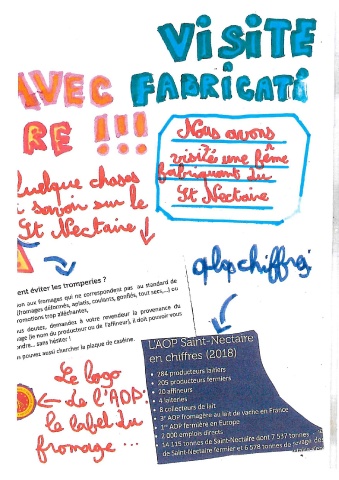 VISITE
AVEC FABRICATI
RE !!!
Nous avons
visité une fême
fabriquant du
St Nectaire
Quelque choses
à savoir sur le
St Nectaire
qlqs chiffres
ent éviter les tromperies ?
ion aux fromages qui ne correspondent pas au standard de
(fromages déformés, aplatis, coulants, gonflés, tout secs,...) ou
promotions trop alléchantes,
us doutes, demandez à votre revendeur la provenance du
age (le nom du producteur ou de l'affineur), il doit pouvoir vous
ondre... sans hésiter !
us pouvez aussi chercher la plaque de caséine.
L'AOP Saint-Nectaire
en chiffres (2018)
• 284 producteurs laitiers
• 205 producteurs fermiers
• 20 affineurs
• 4 laiteries
• 8 collecteurs de lait
• 3e AOP fromagère au lait de vache en France
• 1re AOP fermière en Europe
• 2 000 emplois directs
• 14 115 tonnes de Saint-Nectaire dont 7 537 tonnes
de Saint-Nectaire fermier et 6 578 tonnes de
Le logo
de l'AOP:
le label du
fromage ...